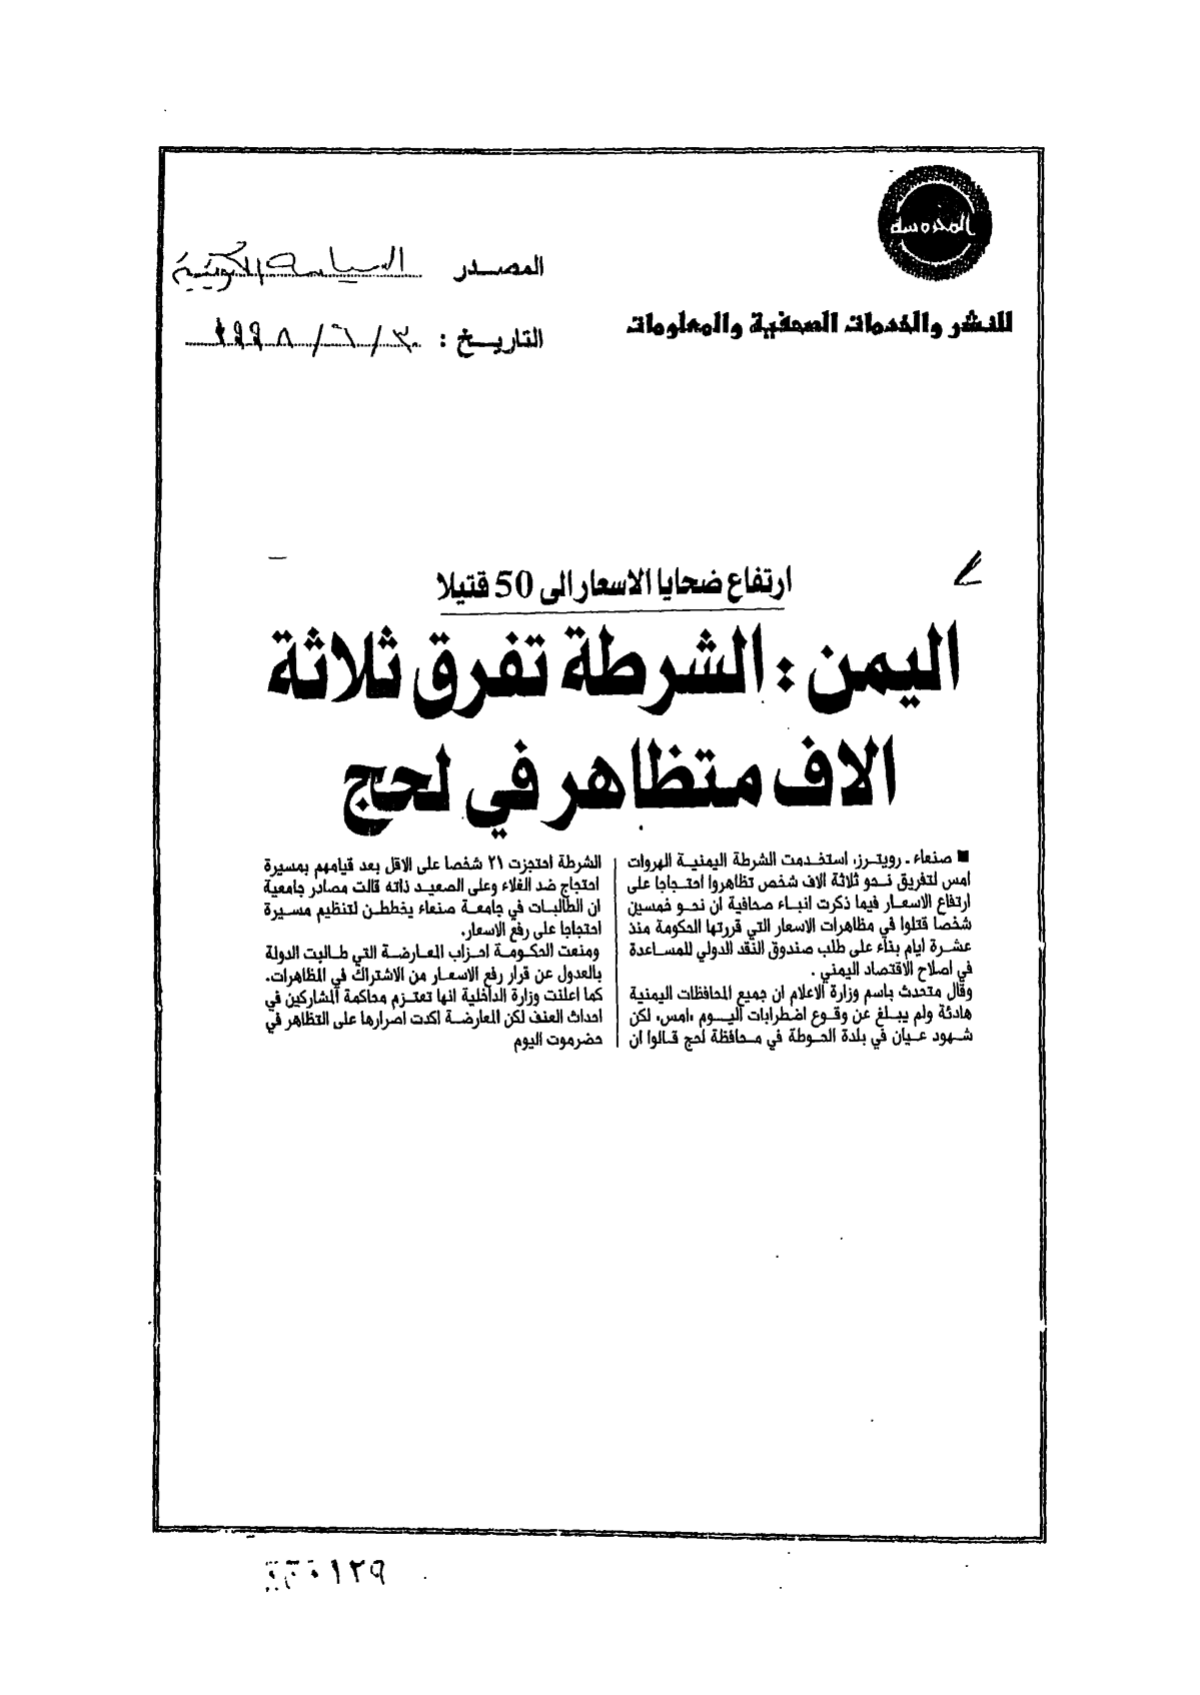 المحروسة
للنشر والخدمات الصحفية والمعلومات
المصدر السياسة الكويتية
التاريخ : ٣٠/٦/١٩٩٨
ارتفاع ضحايا الاسعار الى 50 قتيلا
اليمن : الشرطة تفرق ثلاثة
الاف متظاهر في لحج
■ صنعاء ـ رويترز، استخدمت الشرطة اليمنية الهروات
امس لتفريق نحو ثلاثة الاف شخص تظاهروا احتجاجا على
ارتفاع الاسعار فيما ذكرت انباء صحافية ان نحو خمسين
شخصا قتلوا في مظاهرات الاسعار التي قررتها الحكومة منذ
عشرة ايام بناء على طلب صندوق النقد الدولي للمساعدة
في اصلاح الاقتصاد اليمني .
وقال متحدث باسم وزارة الاعلام ان جميع المحافظات اليمنية
هادئة ولم يبلغ عن وقوع اضطرابات اليوم «امس» لكن
شهود عيان في بلدة الحوطة في محافظة لحج قالوا ان
الشرطة احتجزت ٢١ شخصا على الاقل بعد قيامهم بمسيرة
احتجاج ضد الغلاء وعلى الصعيد ذاته قالت مصادر جامعية
ان الطالبات في جامعة صنعاء يخططن لتنظيم مسيرة
احتجاجا على رفع الاسعار.
ومنعت الحكومة احزاب المعارضة التي طالبت الدولة
بالعدول عن قرار رفع الاسعار من الاشتراك في المظاهرات.
كما اعلنت وزارة الداخلية انها تعتزم محاكمة المشاركين في
احداث العنف لكن المعارضة اكدت اصرارها على التظاهر في
حضرموت اليوم